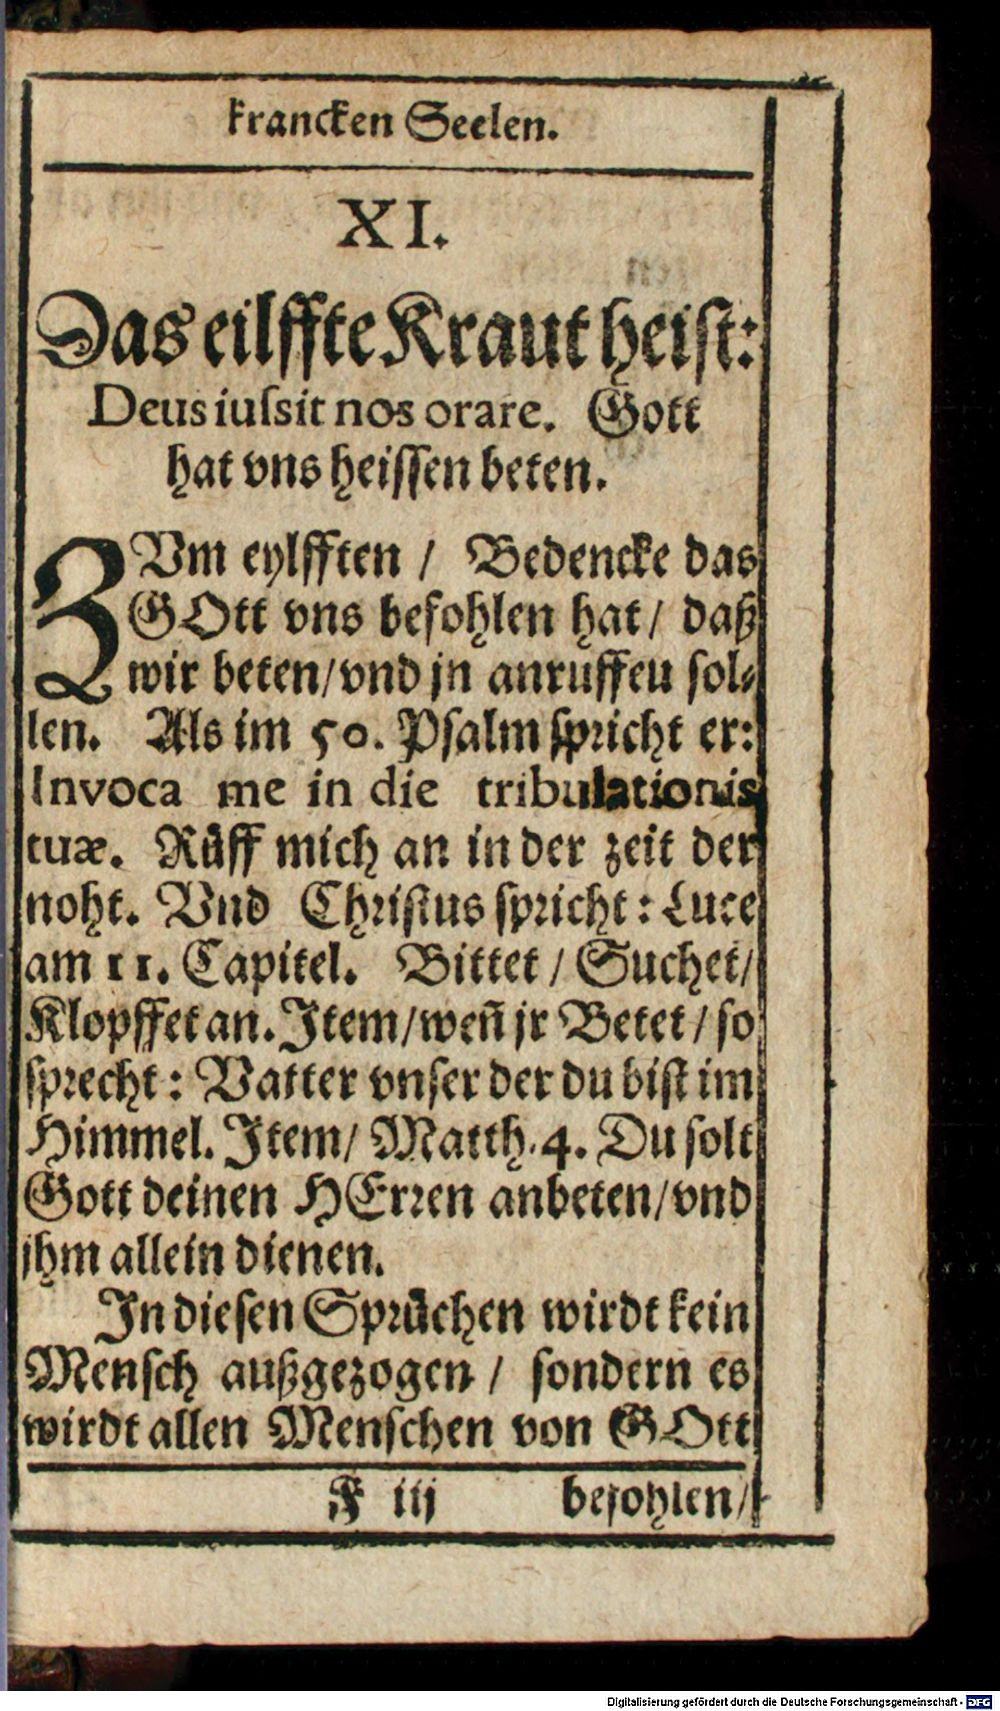 krancken Seelen.
XI.
Das eilffte Kraut heist:
Deus iussit nos orare. Gott
hat vns heissen beten.
ZVm eylfften / Bedencke das
GOtt vns befohlen hat / daß
wir beten/vnd jn anruffeu sol-
len. Als im 50. Psalm spricht er:
Invoca me in die tribulationis
tuæ. Růff mich an in der zeit der
noht. Vnd Christus spricht: Luce
am 11. Capitel. Bittet / Suchet/
Klopffet an. Item/weñ jr Betet / so
sprecht: Vatter vnser der du bist im
Himmel. Item/ Matth. 4. Du solt
Gott deinen HErren anbeten/vnd
jhm allein dienen.
In diesen Sprüchen wirdt kein
Mensch außgezogen / sondern es
wirdt allen Menschen von GOtt
F iij befohlen/
Digitalisierung gefördert durch die Deutsche Forschungsgemeinschaft - DFG